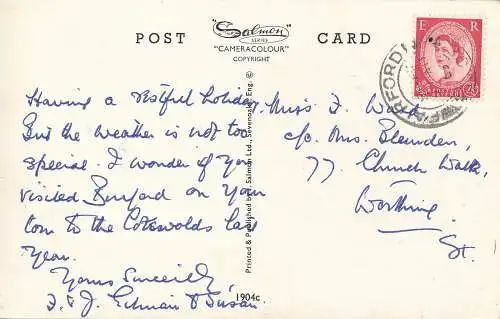 POST CARD
Salmon
SERIES
"CAMERACOLOUR"
COPYRIGHT
E R
FORD
Having a restful holiday
But the weather is not too
special. I wonder if you
visited Burford on your
tour to the Cotswolds last
year.
Yours Sincerely
& J. & Susan
Printed & Published by J. Salmon Ltd., Sevenoaks, Eng. ©
1904c
Miss J. West
c/o Mrs.
77, Church Walk,
Worthing
St.